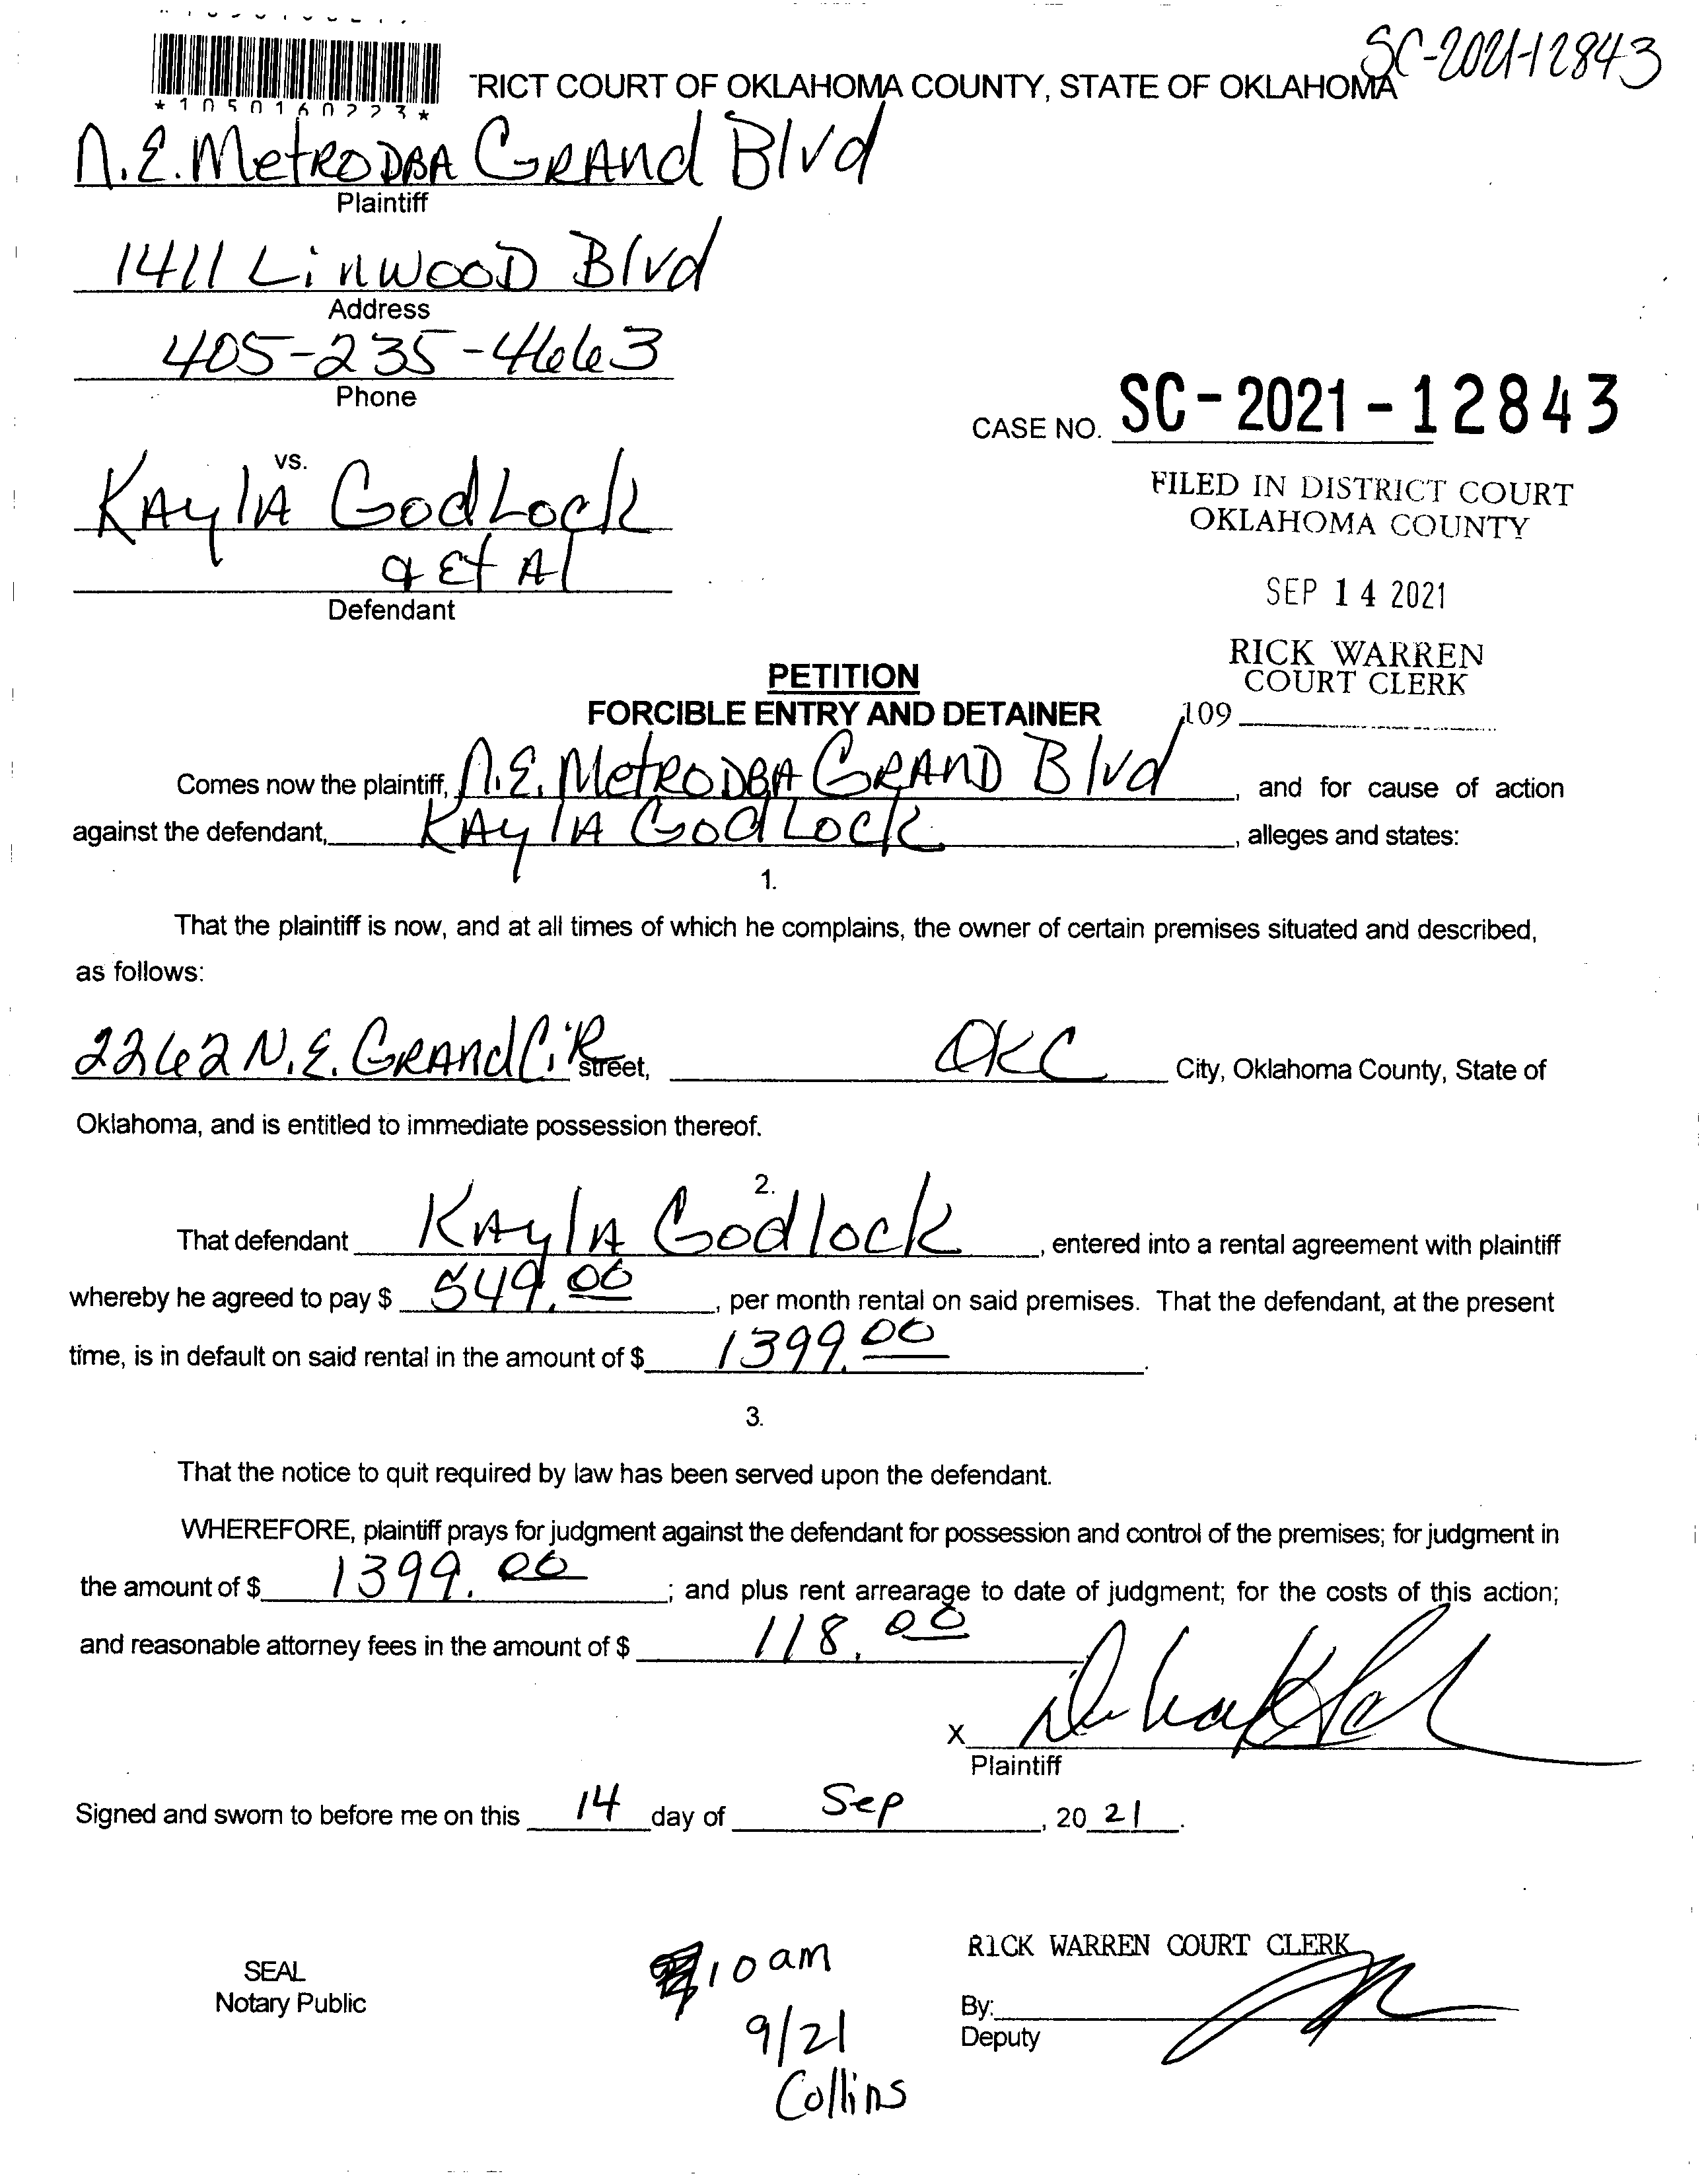 SC-2021-12843
*1050160223*
RICT COURT OF OKLAHOMA COUNTY, STATE OF OKLAHOMA
N.E. Metro DBA Grand Blvd
Plaintiff
1411 Linwood Blvd
Address
405-235-4663
Phone
CASE NO. SC-2021-12843
vs.
Kayla Godlock
& Et Al
Defendant
FILED IN DISTRICT COURT
OKLAHOMA COUNTY
SEP 14 2021
RICK WARREN
COURT CLERK
109
PETITION
FORCIBLE ENTRY AND DETAINER
Comes now the plaintiff, N.E. Metro DBA Grand Blvd, and for cause of action
against the defendant, Kayla Godlock, alleges and states:
1.
That the plaintiff is now, and at all times of which he complains, the owner of certain premises situated and described,
as follows:
2262 N.E. Grand Cir street, OKC City, Oklahoma County, State of
Oklahoma, and is entitled to immediate possession thereof.
2.
That defendant Kayla Godlock, entered into a rental agreement with plaintiff
whereby he agreed to pay $ 549.00, per month rental on said premises. That the defendant, at the present
time, is in default on said rental in the amount of $ 1399.00.
3.
That the notice to quit required by law has been served upon the defendant.
WHEREFORE, plaintiff prays for judgment against the defendant for possession and control of the premises; for judgment in
the amount of $ 1399.00; and plus rent arrearage to date of judgment; for the costs of this action;
and reasonable attorney fees in the amount of $ 118.00
X
Plaintiff
Signed and sworn to before me on this 14 day of Sep, 20 21.
SEAL
Notary Public
10 am
9/21
Collins
RICK WARREN COURT CLERK
By:
Deputy